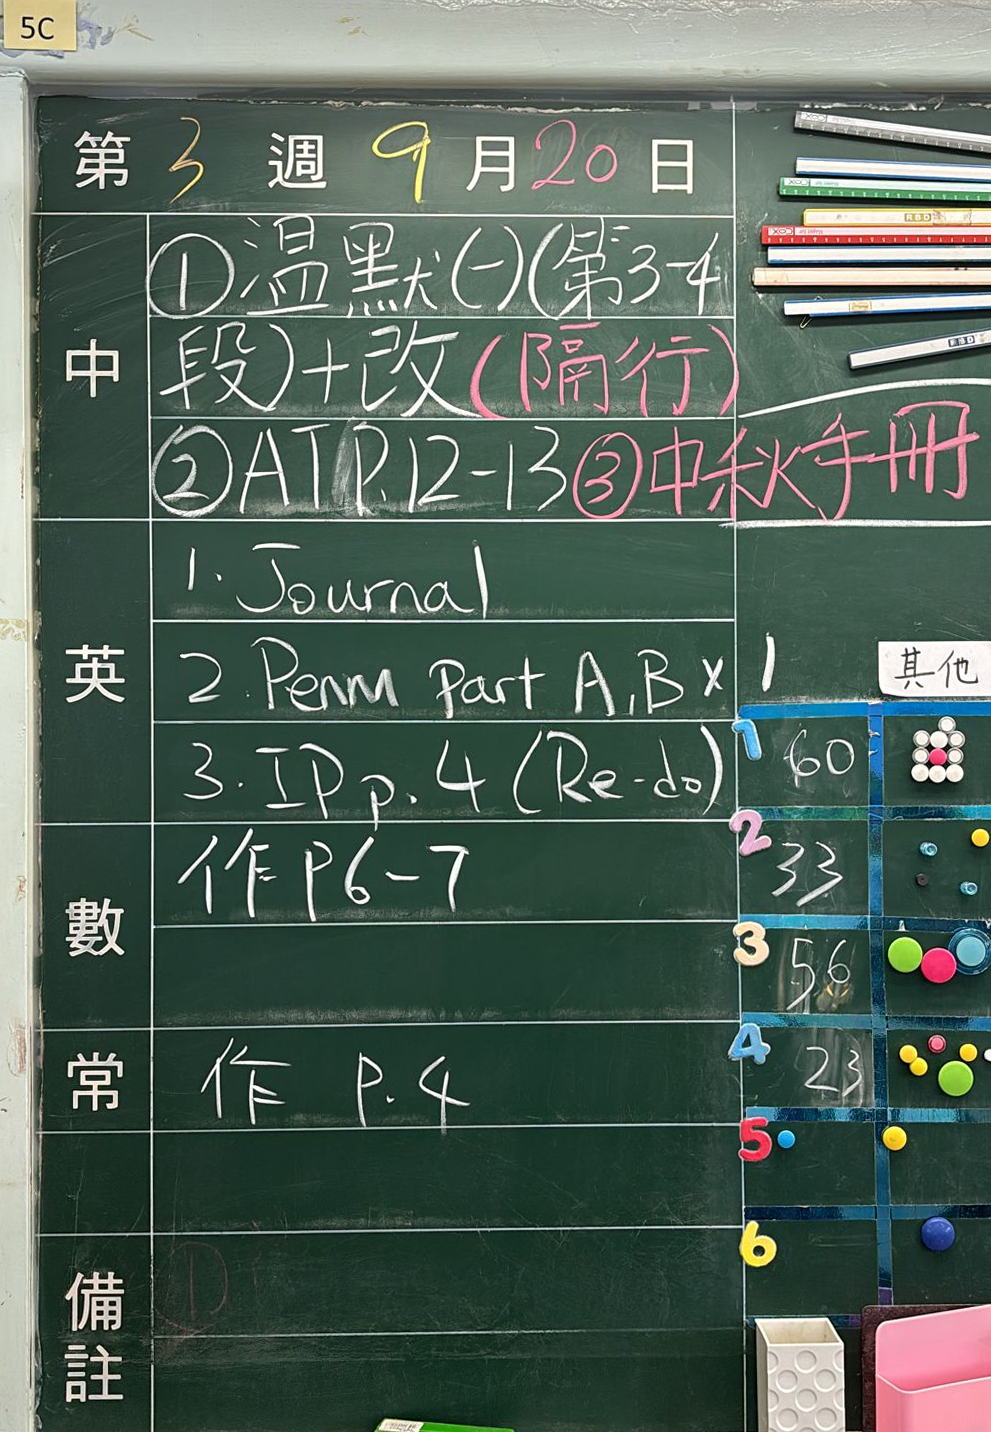 5C
第 3 週 9 月 20 日
中
①溫默(一)(第3-4
段)+改(隔行)
②ATP.12-13③中秋手冊
英
1. Journal
2. Penm Part A,B x 1
3. IP p. 4 (Re-do)
數
作 P6-7
常
作 P.4
備註
①
其他
1 60
2 33
3 56
4 23
5
6